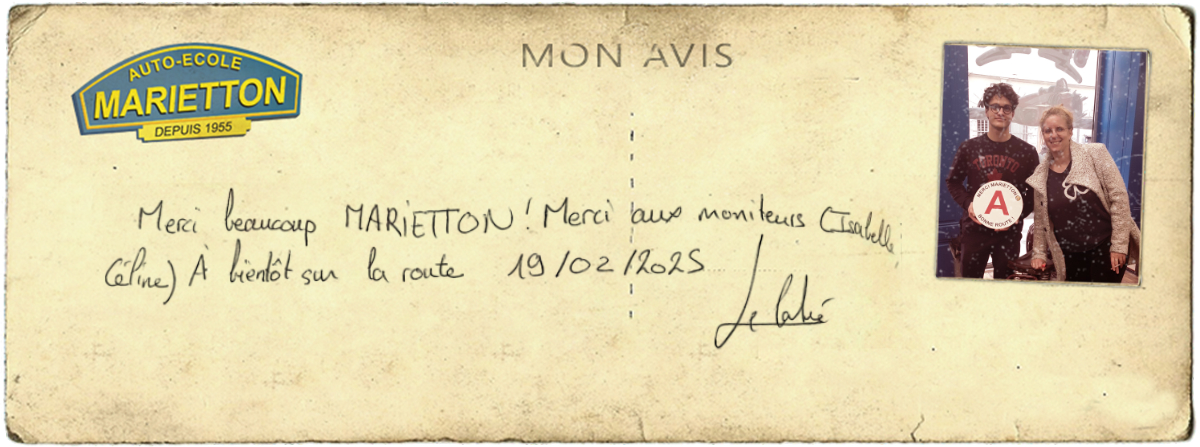 AUTO-ECOLE
MARIETTON
DEPUIS 1955
MON AVIS
Merci beaucoup MARIETTON! Merci aux moniteurs (Isabelle,
Céline) À bientôt sur la route 19/02/2025
TORONTO
MERCI MARIETTON
A
BONNE ROUTE !